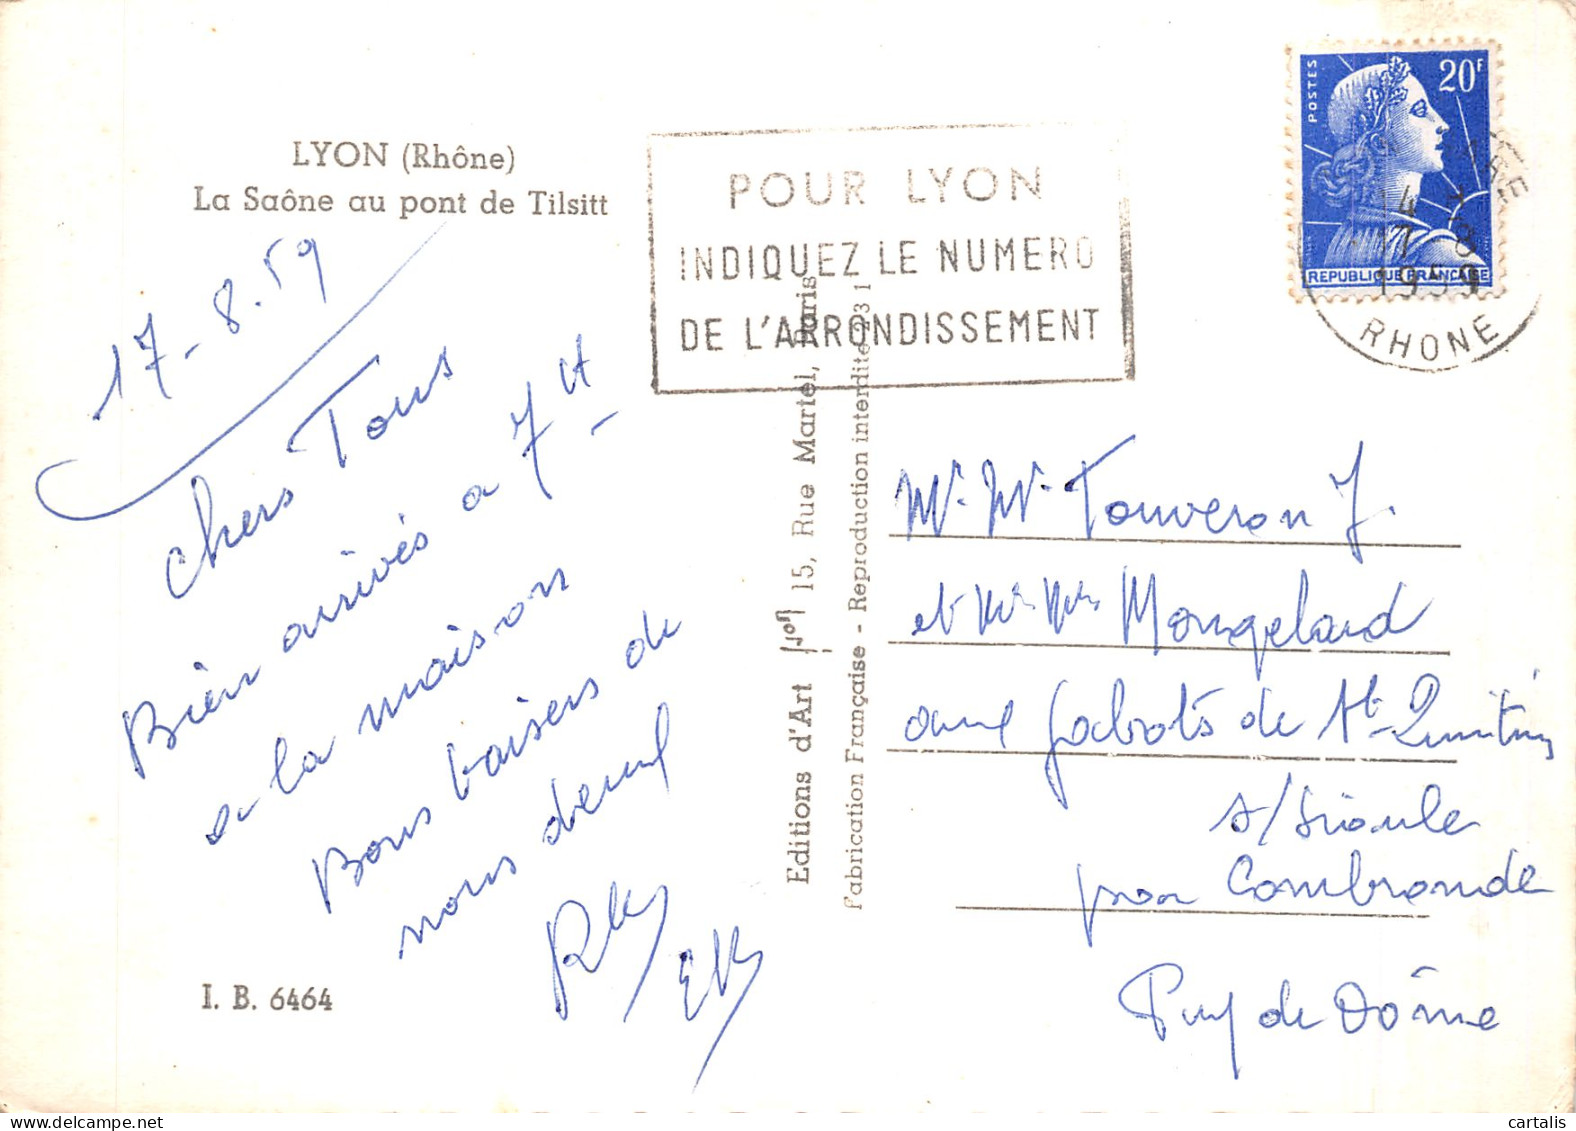 LYON (Rhône)
La Saône au pont de Tilsitt
17-8.59
Chers Tous
Bien arrivés a 7H
a la maison
Bons baisers de
nous deux
I. B. 6464
POUR LYON
INDIQUEZ LE NUMERO
DE L'ARRONDISSEMENT
Editions d'Art 15, Rue Martel, Paris
Fabrication Française - Reproduction interdite 23 1
POSTES
20F
REPUBLIQUE FRANÇAISE
14
17 8
1959
RHONE
Mr Mme Touveron J.
et Mr Mme Mongelard
aux Jabots de St-Quintin
s/Sioule
par Combronde
Puy de Dôme
cartalis